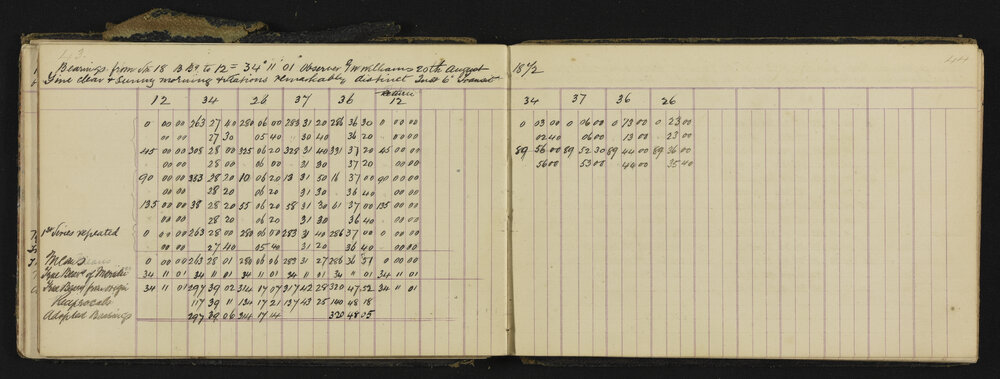 43
Bearings from Stn 18 B Bg to 12 = 34° 11' 01" Observer G Williams 20th August
Time clear & Sunny morning & Stations remarkably distinct Inst 6" Transit
12 34 26 37 36 Return 12
0 00 00 263 27 40 280 06 00 283 31 20 286 36 30 0 00 00
00 00 27 30 05 40 30 40 36 20 00 00
45 00 00 308 28 00 325 06 20 328 31 40 331 37 20 45 00 00
00 00 28 00 06 00 31 30 37 20 00 00
90 00 00 353 28 20 10 06 20 13 31 50 16 37 00 90 00 00
00 00 28 20 06 20 31 30 36 40 00 00
135 00 00 38 28 20 55 06 20 58 31 30 61 37 00 135 00 00
00 00 28 20 06 20 31 30 36 40 00 00
1st Series repeated 0 00 00 263 28 00 280 06 00 283 31 40 286 37 00 0 00 00
00 00 27 40 05 40 31 20 36 40 00 00
Means 0 00 00 263 28 01 280 06 06 283 31 27 286 36 51 0 00 00
True Bearg of 34 11 01 34 11 01 34 11 01 34 11 01 34 11 01 34 11 01
True Bgs from origin 34 11 01 297 39 02 314 17 07 317 42 28 320 47 52 34 11 01
Reciprocals 117 39 11 134 17 21 137 43 25 140 48 18
Adopted Bearings 297 39 06 314 17 14 320 48 05
1872
44
34 37 36 26
0 03 00 0 06 00 0 13 00 0 23 00
02 40 06 00 13 00 23 00
89 56 00 89 52 30 89 44 00 89 36 00
56 00 53 00 44 00 35 40